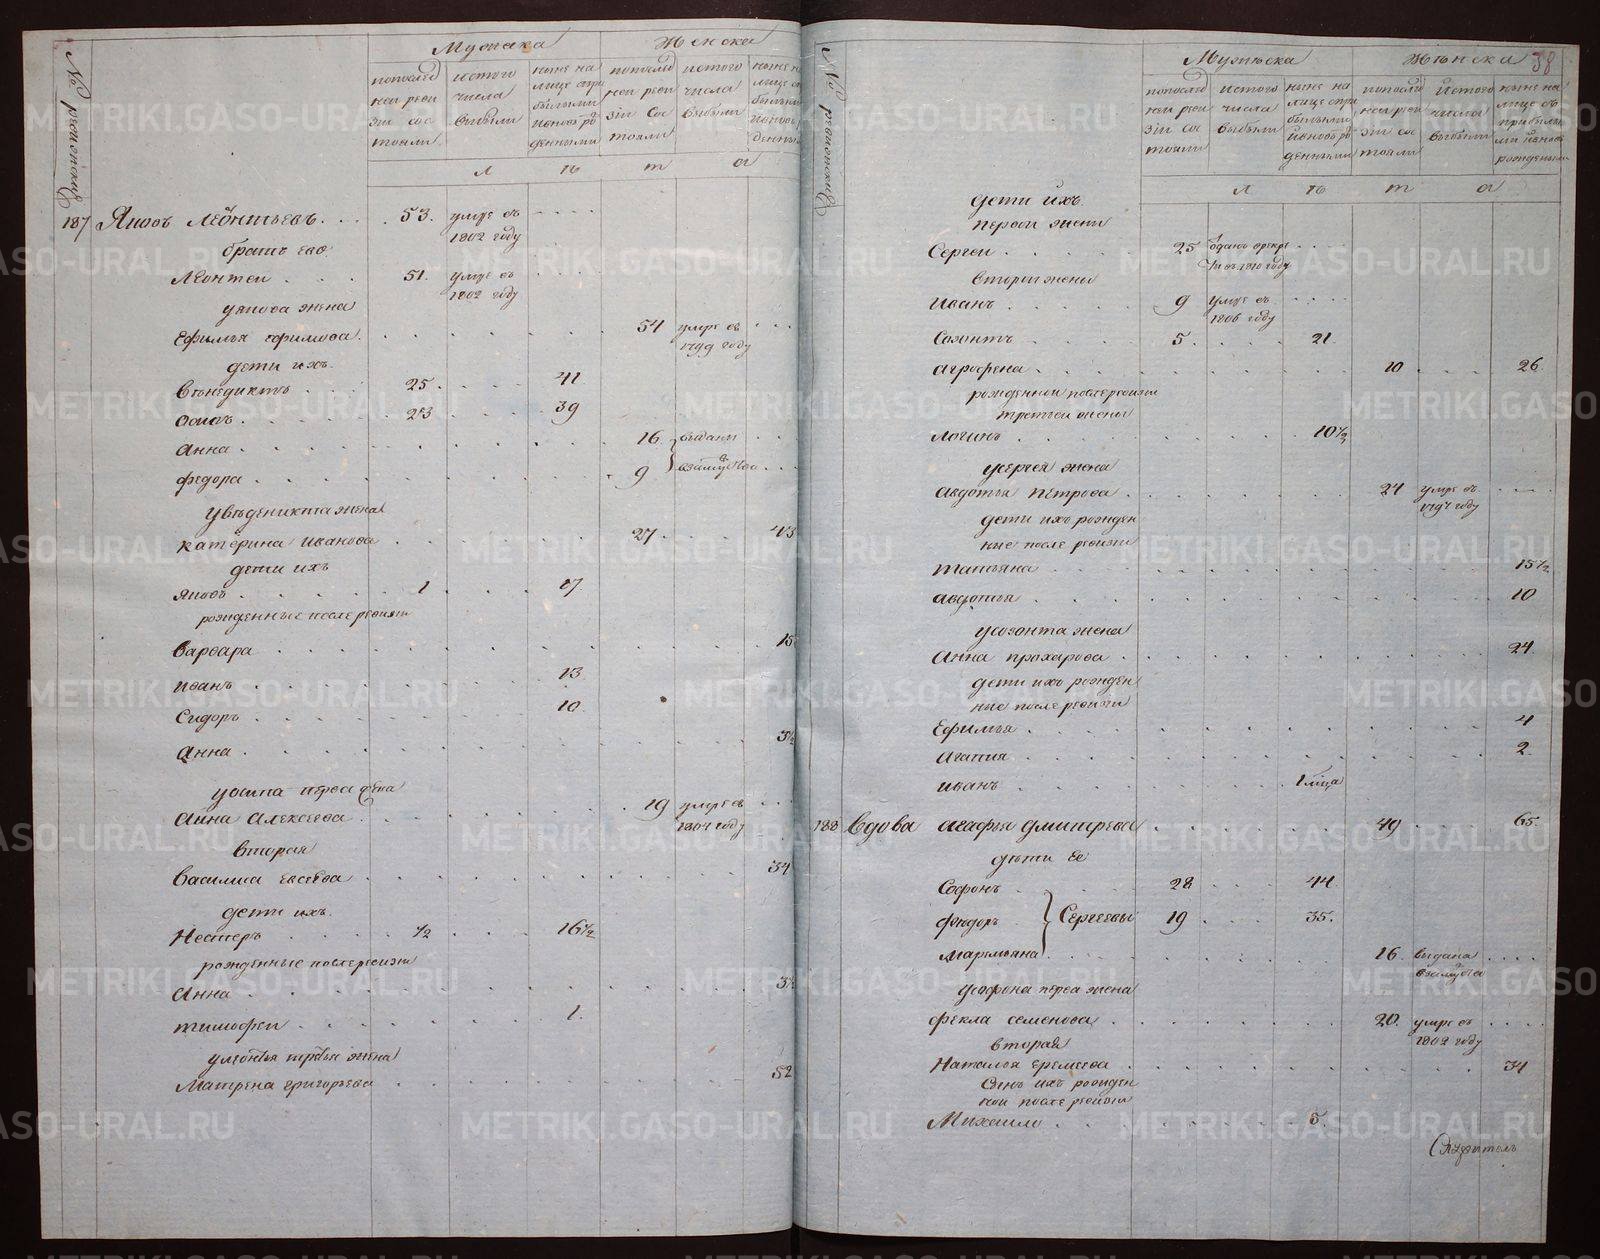 № ревизския
Мужеска
Женска
попослед ней реви зіи сос тояли
ис того числа выбыли
ныне на лице при былыми и вновь ро жденными
попослед ней реви зіи Сос тояли
ис того числа выбыли
л ѣ т а
187 Яковъ Леонтьевъ . . . . 53. умре въ 1802 году . . . .
братъ ево
Леонтеи . . . . 51. умре въ 1802 году
у якова жена
Ефимья Ефимова . . . 54 умре въ 1799 году
дети ихъ.
Вѣнедиктъ . . 25 . . . 41
Осипъ . . . 23 . . . 39
Анна . . . 16. выданы
федора . . . 9 взамужство
у вѣденикта жена
катерина Иванова . . . 27 . . . 43
дети ихъ
Яковъ . . . 1 . . . 17.
рожденные после ревизіи
Варвара . . . 15
иванъ . . . 13
Сидоръ . . . 10
Анна . . . 3½
у осипа перва жена
Анна Алексеева . . . 19 умре въ 1804 году
вторая
Василиса Евсеева . . . 34
дети ихъ.
Нестеръ . . . ½ . . . 16½
рожденные после ревизіи
Анна . . . 3½
тимофеи . . . 1.
у леонтья третья жена
Матрена григорьева . . . 52
№ ревизския
38
Мужеска
Женска
попослед ней реви зіи сос тояли
ис того числа выбыли
ныне на лице при былыми и вновь ро жденными
попослед ней реви зіи сос тояли
ис того числа выбыли
ныне на лице съ прибылы ми и вновь рожденными
л ѣ т а
дети ихъ
первой жены
Сергеи . . . 25 одачъ въ рекру ты въ 1810 году
второи жены
Иванъ . . . 9 умре въ 1806 году
Созонтъ . . . 5 . . . 21
агрофена . . . 10 . . . 26
рожденнои после ревизіи
третьеи жены
Логинъ . . . 10½
у сергея жена
Авдотья Петрова . . . 24 умре въ 1797 году
дети ихъ рожден
ные после ревизіи
татьяна . . . 15½
авдотья . . . 10
у созонта жена
Анна прохарова . . . 24
дети ихъ рожден
ные после ревизіи
Ефимья . . . 4
агапия . . . 2
иванъ . . . 1 мѣца
188 Вдова агафья дмитрева . . . 49 . . . 65
дѣти Ее
Софонъ . . . 28 . . . 44
Федоръ } Сергеевы 19 . . . 35.
маремьяна . . . 16. выдана взамужство
у софона перва жена
фекла семенова . . . 20. умре въ 1802 году
вторая
Наталья еремеева . . . 34
Сынъ ихъ рожден
нои после ревизіи
Михаило . . . 5.
METRIKI.GASO-URAL.RU